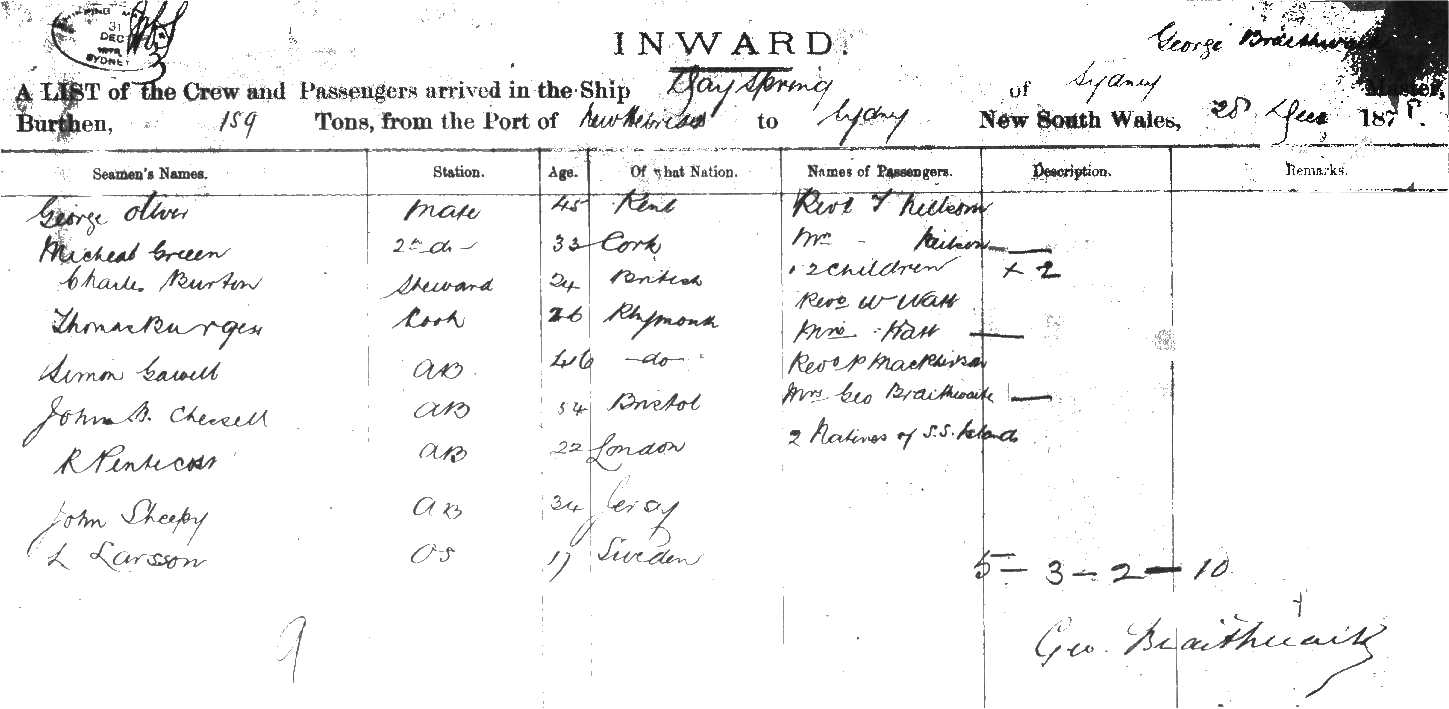 31
DEC
SYDNEY
INWARD.
George Braithwaite
A LIST of the Crew and Passengers arrived in the Ship Dayspring of Sydney Master,
Burthen, 159 Tons, from the Port of New Hebrides to Sydney New South Wales, 28 Dec 187
Seamen's Names. Station. Age. Of what Nation. Names of Passengers. Description. Remarks.
George Oliver Mate 45 Kent Revd T Neilson
Micheal Green 2nd do 33 Cork Mrs - Neilson —
Charles Burton Steward 24 British 2 Children + 2
Thomas Burgess Cook 26 Plymouth Revd W Watt
Mrs Watt —
Simon Gawell AB 46 -do- Revd P MacPherson
John B. Chessell AB 54 Bristol Mrs Geo Braithwaite —
R Pentecost AB 22 London 2 Natives of S.S. Islands
John Sheepy AB 34 Jersy
L Larsson OS 17 Sweden
5 - 3 - 2 - 10
9
Geo. Braithwaite